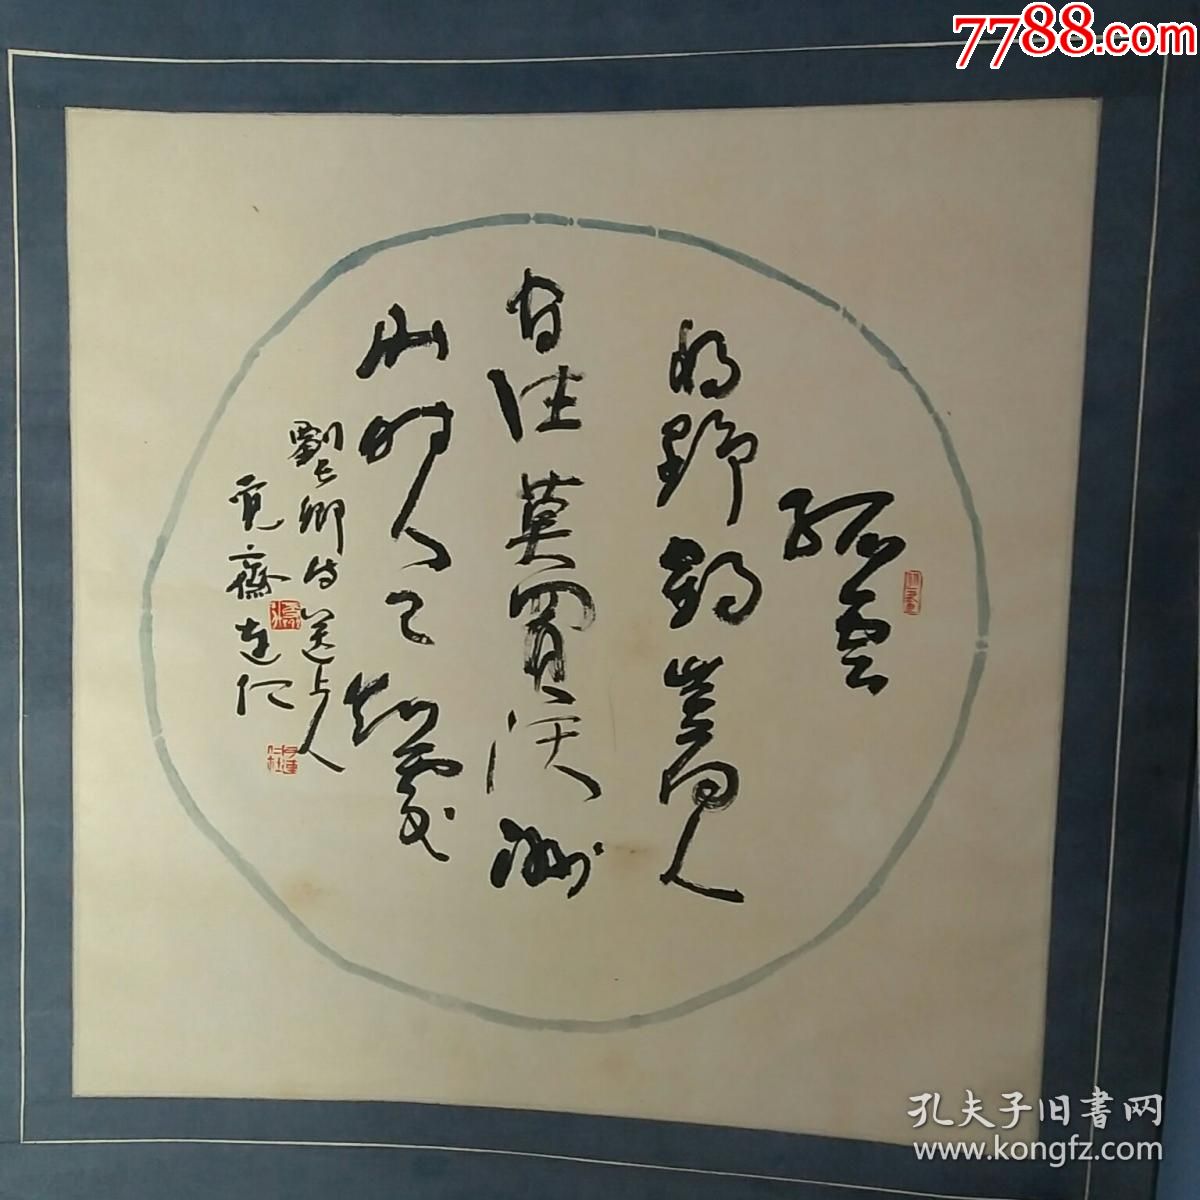 7788.com
孤雲
將野鶴豈向人
間住莫買沃洲
山時人已知處
劉長卿詩送上人
覓齋連仁
孔夫子旧書网
www.kongfz.com